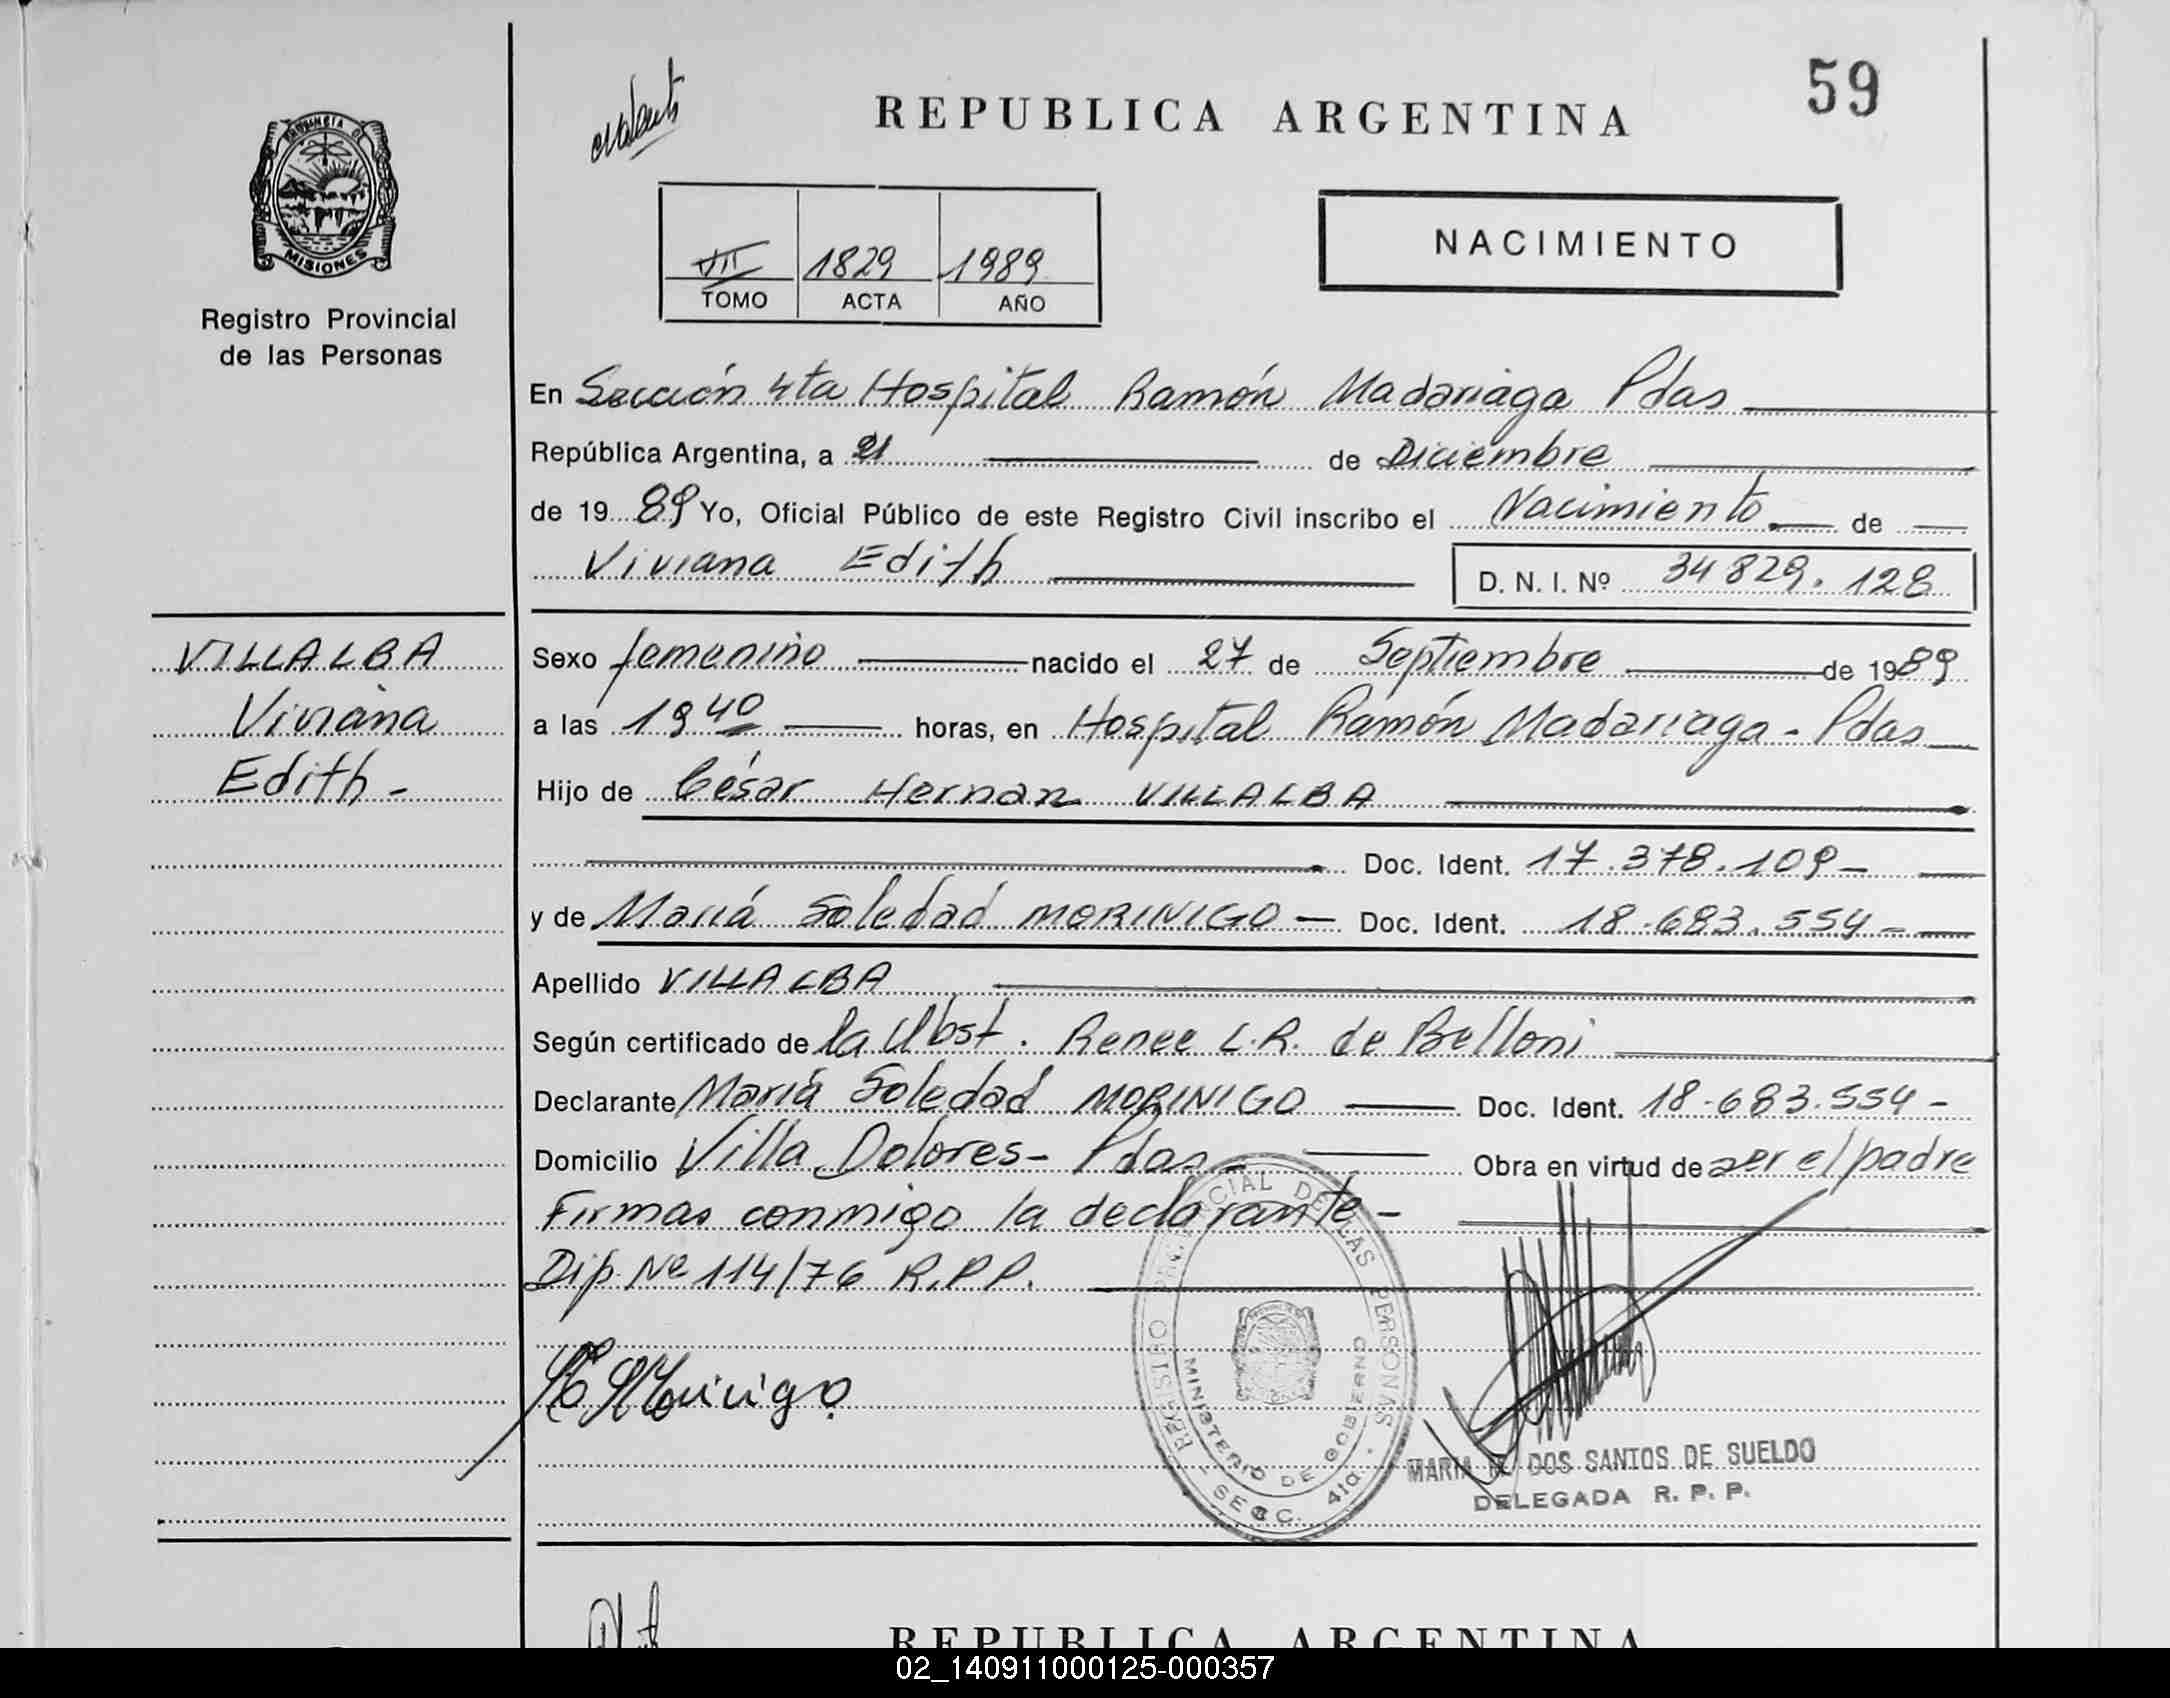 59
REPUBLICA ARGENTINA
PROVINCIA DE
MISIONES
Registro Provincial
de las Personas
VII 1829 1989
TOMO ACTA AÑO
NACIMIENTO
En Sección 4ta Hospital Ramón Madariaga Pdas
República Argentina, a 21 de Diciembre
de 1989 Yo, Oficial Público de este Registro Civil inscribo el Nacimiento de
Viviana Edith D. N. I. Nº 34829.128
VILLALBA
Viviana
Edith-
Sexo femenino nacido el 27 de Septiembre de 1989
a las 19 40 horas, en Hospital Ramón Madariaga - Pdas
Hijo de César Hernan VILLALBA
Doc. Ident. 17.378.109-
y de María Soledad MORINIGO - Doc. Ident. 18.683.554-
Apellido VILLALBA
Según certificado de la Obst. Renee L.R. de Belloni
Declarante María Soledad MORINIGO Doc. Ident. 18.683.554-
Domicilio Villa Dolores- Pdas- Obra en virtud de ser el padre
Firmas conmigo la declarante-
Dip. Nº 114/76 R.P.P.
Morinigo
REGISTRO PROVINCIAL DE LAS PERSONAS
MINISTERIO DE GOBIERNO
- SECC. 4ta. -
MARIA DOS SANTOS DE SUELDO
DELEGADA R. P. P.
REPUBLICA ARGENTINA
02_140911000125-000357